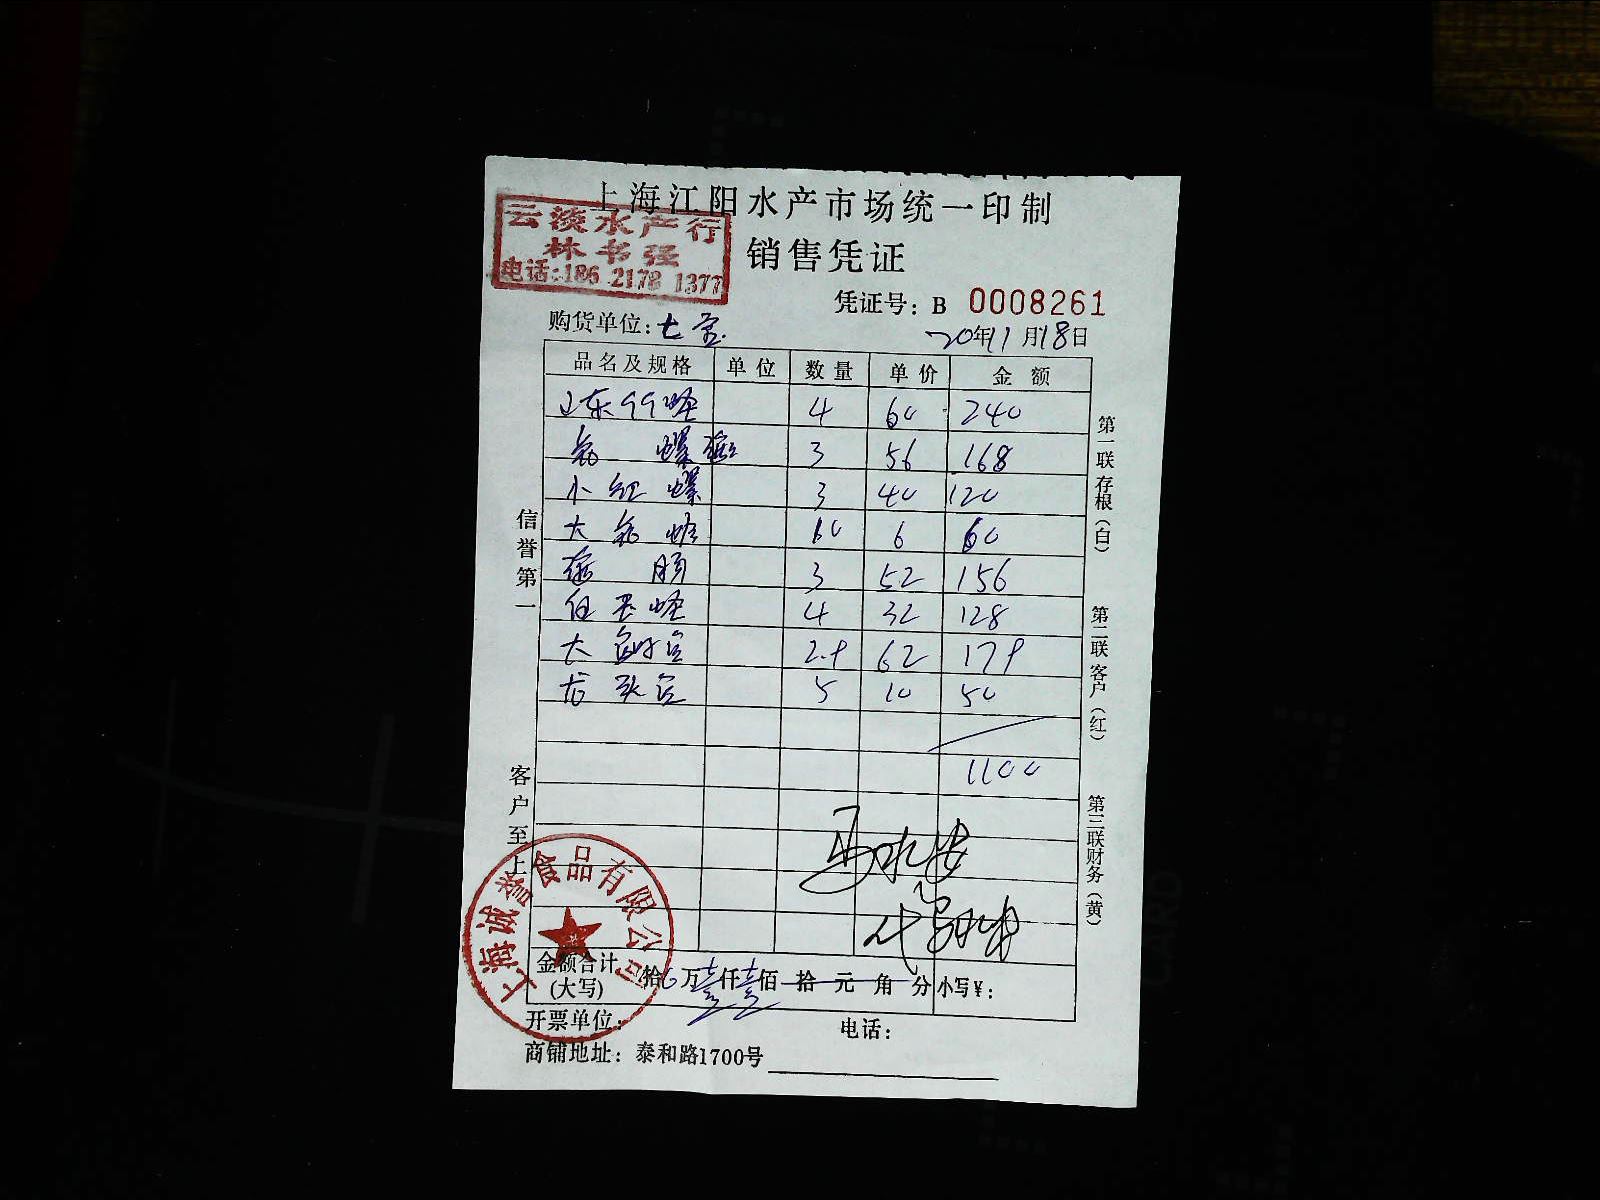 上海江阳水产市场统一印制
云淡水产行
林书强
电话:186 2178 1377
销售凭证
凭证号: B 0008261
购货单位: 七宝
20年11月18日
品名及规格 单位 数量 单价 金额
4 60 240
螺 3 56 168
小红螺 3 40 120
大 10 6 60
肠 3 52 156
4 32 128
大 2.9 62 179
龙头 5 10 50
1100
信誉第一
客户至上
第一联 存根(白)
第二联 客户(红)
第三联 财务(黄)
上海诚誉食品有限公司
金额合计(大写) 拾 万壹仟壹佰拾元角分 小写¥:
开票单位: 电话:
商铺地址: 泰和路1700号